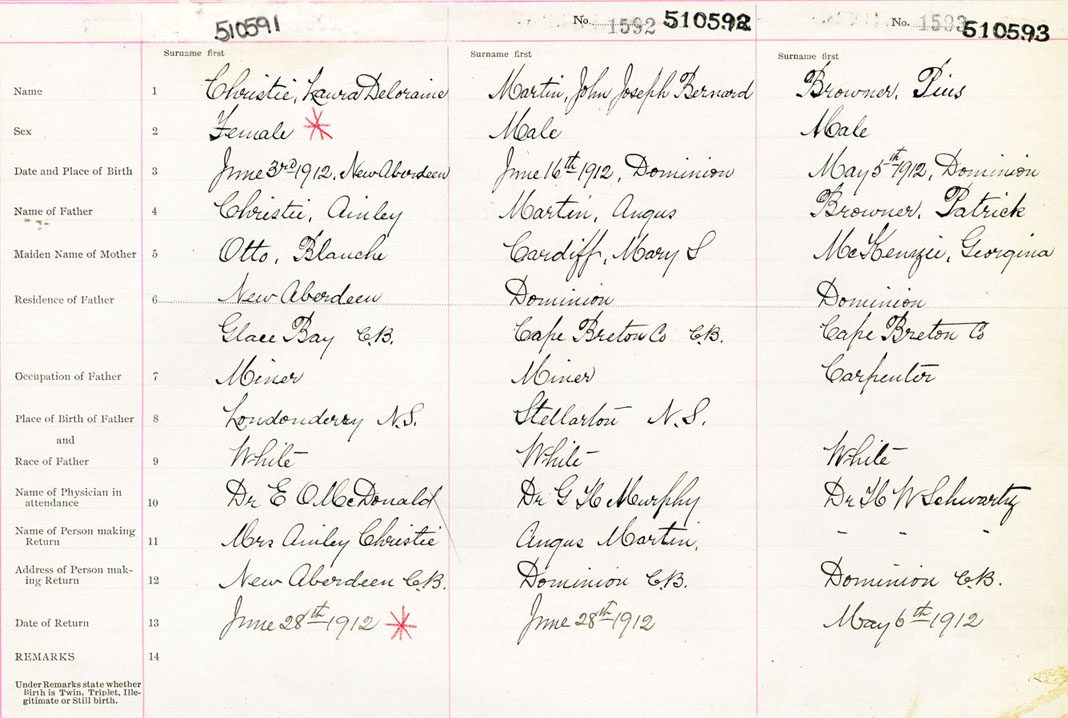 510591 No. 1592 510592 No. 1593 510593
Surname first Surname first Surname first
Name 1 Christie, Laura Deloraine Martin, John Joseph Bernard Browner, Pius
Sex 2 Female Male Male
Date and Place of Birth 3 June 3rd 1912, New Aberdeen June 16th 1912, Dominion May 5th 1912, Dominion
Name of Father 4 Christie, Ainley Martin, Angus Browner, Patrick
Maiden Name of Mother 5 Otto, Blanche Cardiff, Mary S McKenzie, Georgina
Residence of Father 6 New Aberdeen Dominion Dominion
Glace Bay C.B. Cape Breton Co C.B. Cape Breton Co
Occupation of Father 7 Miner Miner Carpenter
Place of Birth of Father 8 Londonderry N.S. Stellarton N.S.
and
Race of Father 9 White White White
Name of Physician in
attendance 10 Dr E O McDonald Dr G H Murphy Dr H W Schwartz
Name of Person making
Return 11 Mrs Ainley Christie Angus Martin, - - -
Address of Person mak-
ing Return 12 New Aberdeen C.B. Dominion C.B. Dominion C.B.
Date of Return 13 June 28th 1912 June 28th 1912 May 6th 1912
REMARKS 14
Under Remarks state whether
Birth is Twin, Triplet, Ille-
gitimate or Still birth.